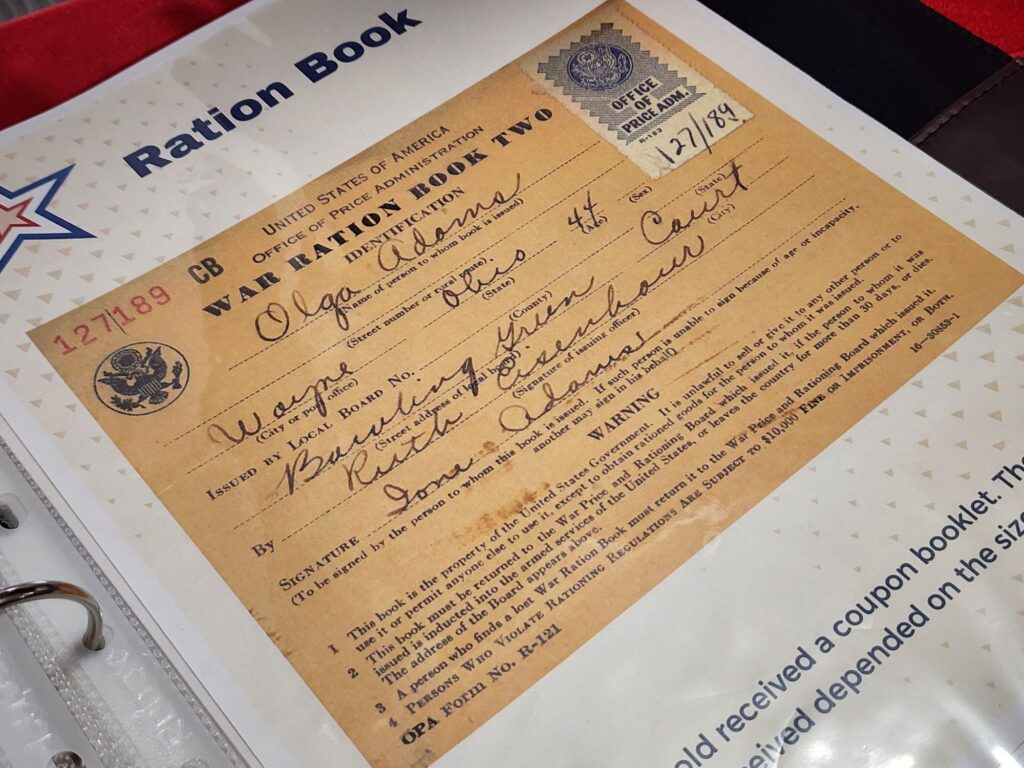 Ration Book
UNITED STATES OF AMERICA
OFFICE OF PRICE ADMINISTRATION
127189 CB WAR RATION BOOK TWO
IDENTIFICATION
OFFICE
OF
PRICE ADM.
R-123
127/189
Olga Adams
(Name of person to whom book is issued)
(Street number or rural route)
Wayne Ohio 44
(City or post office) (State) (Age) (Sex)
ISSUED BY LOCAL BOARD No. (County) (State)
Bowling Green Court
(Street address of local board) (City)
By Ruth Eisenhour
(Signature of issuing officer)
SIGNATURE Ione Adams
(To be signed by the person to whom this book is issued. If such person is unable to sign because of age or incapacity,
another may sign in his behalf)
WARNING
1 This book is the property of the United States Government. It is unlawful to sell or give it to any other person or
use it or permit anyone else to use it, except to obtain rationed goods for the person to whom it was issued.
2 This book must be returned to the War Price and Rationing Board which issued it, if the person to whom it was
issued is inducted into the armed services of the United States, or leaves the country for more than 30 days, or dies.
The address of the Board appears above.
3 A person who finds a lost War Ration Book must return it to the War Price and Rationing Board which issued it.
4 PERSONS WHO VIOLATE RATIONING REGULATIONS ARE SUBJECT TO $10,000 FINE OR IMPRISONMENT, OR BOTH.
OPA Form No. R-121 16-30853-1
old received a coupon booklet. The
eived depended on the size